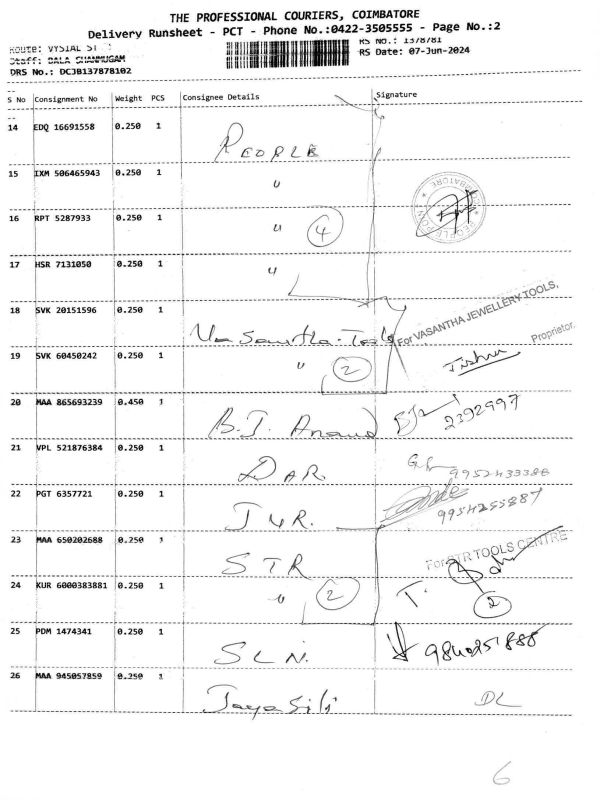 THE PROFESSIONAL COURIERS, COIMBATORE
Delivery Runsheet - PCT - Phone No.:0422-3505555 - Page No.:2
Route: VYSIAL ST
RS No.: 1378781
Staff: BALA SHANMUGAM
RS Date: 07-Jun-2024
DRS No.: DCJB137878102
S No Consignment No Weight PCS Consignee Details Signature
14 EDQ 16691558 0.250 1 PEOPLE
15 IXM 506465943 0.250 1 "
16 RPT 5287933 0.250 1 " 4
17 HSR 7131050 0.250 1 "
18 SVK 20151596 0.250 1 Vasantha Tools For VASANTHA JEWELLERY TOOLS,
19 SVK 60450242 0.250 1 " 2 Proprietor.
20 MAA 865693239 0.450 1 B.J. Anand 2392997
21 VPL 521876384 0.250 1 DAR. 9952433388
22 PGT 6357721 0.250 1 9954255887
23 MAA 650202688 0.250 1 STR For STR TOOLS CENTRE
24 KUR 6000383881 0.250 1 " 2 T. 2
25 PDM 1474341 0.250 1 SLN. 9840251888
26 MAA 945057859 0.250 1 DL
6